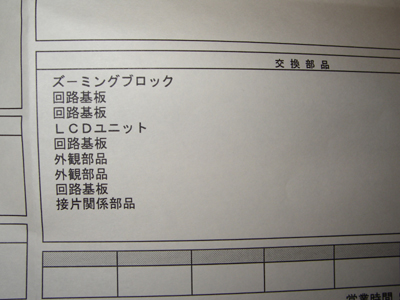 交換部品
ズーミングブロック
回路基板
回路基板
ＬＣＤユニット
回路基板
外観部品
外観部品
回路基板
接片関係部品
営業時間